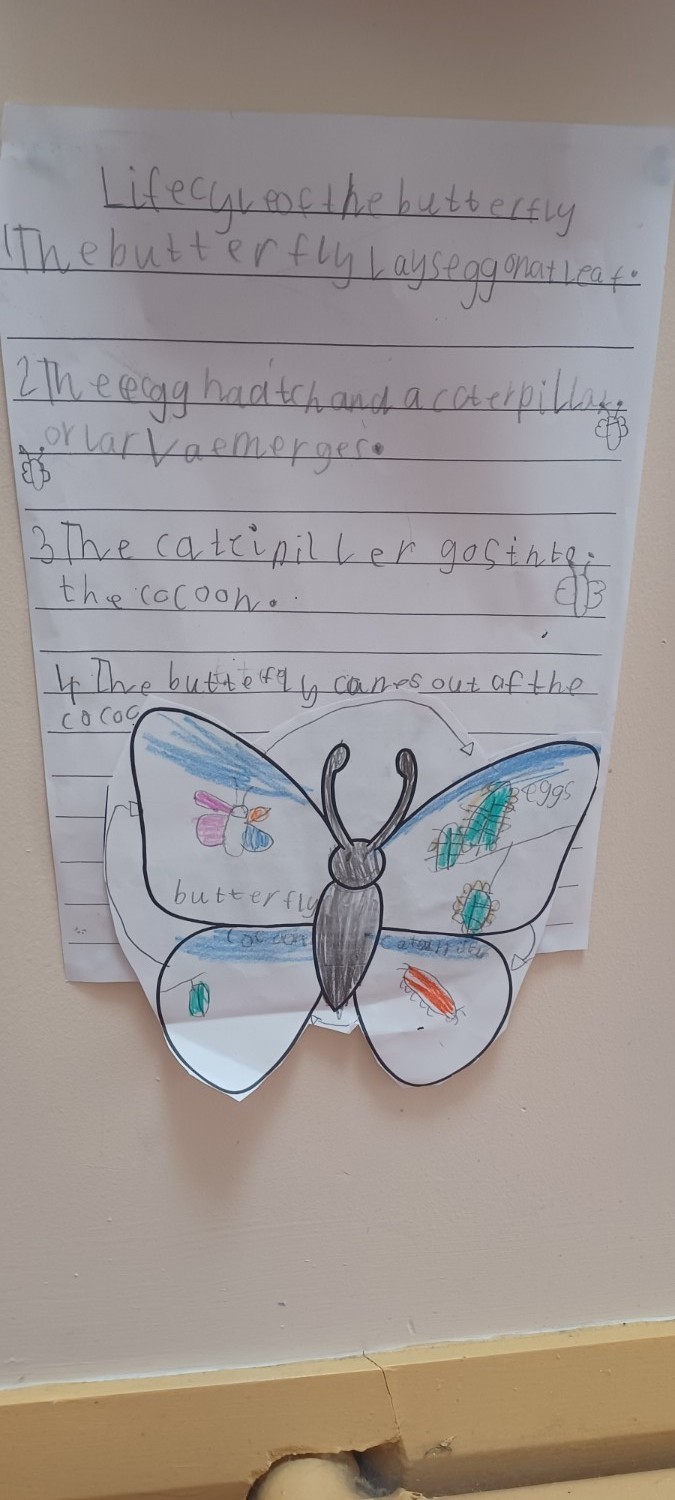 Lifecyleof the butterfly
1The butterfly Lays egg on at leaf.
2The eegg hadtch and a caterpillar.
or larva emerges.
3 The cateipiller gos into.
the cocoon.
4 The butterfly cames out of the
cococ
eggs
butterfly
cocoon